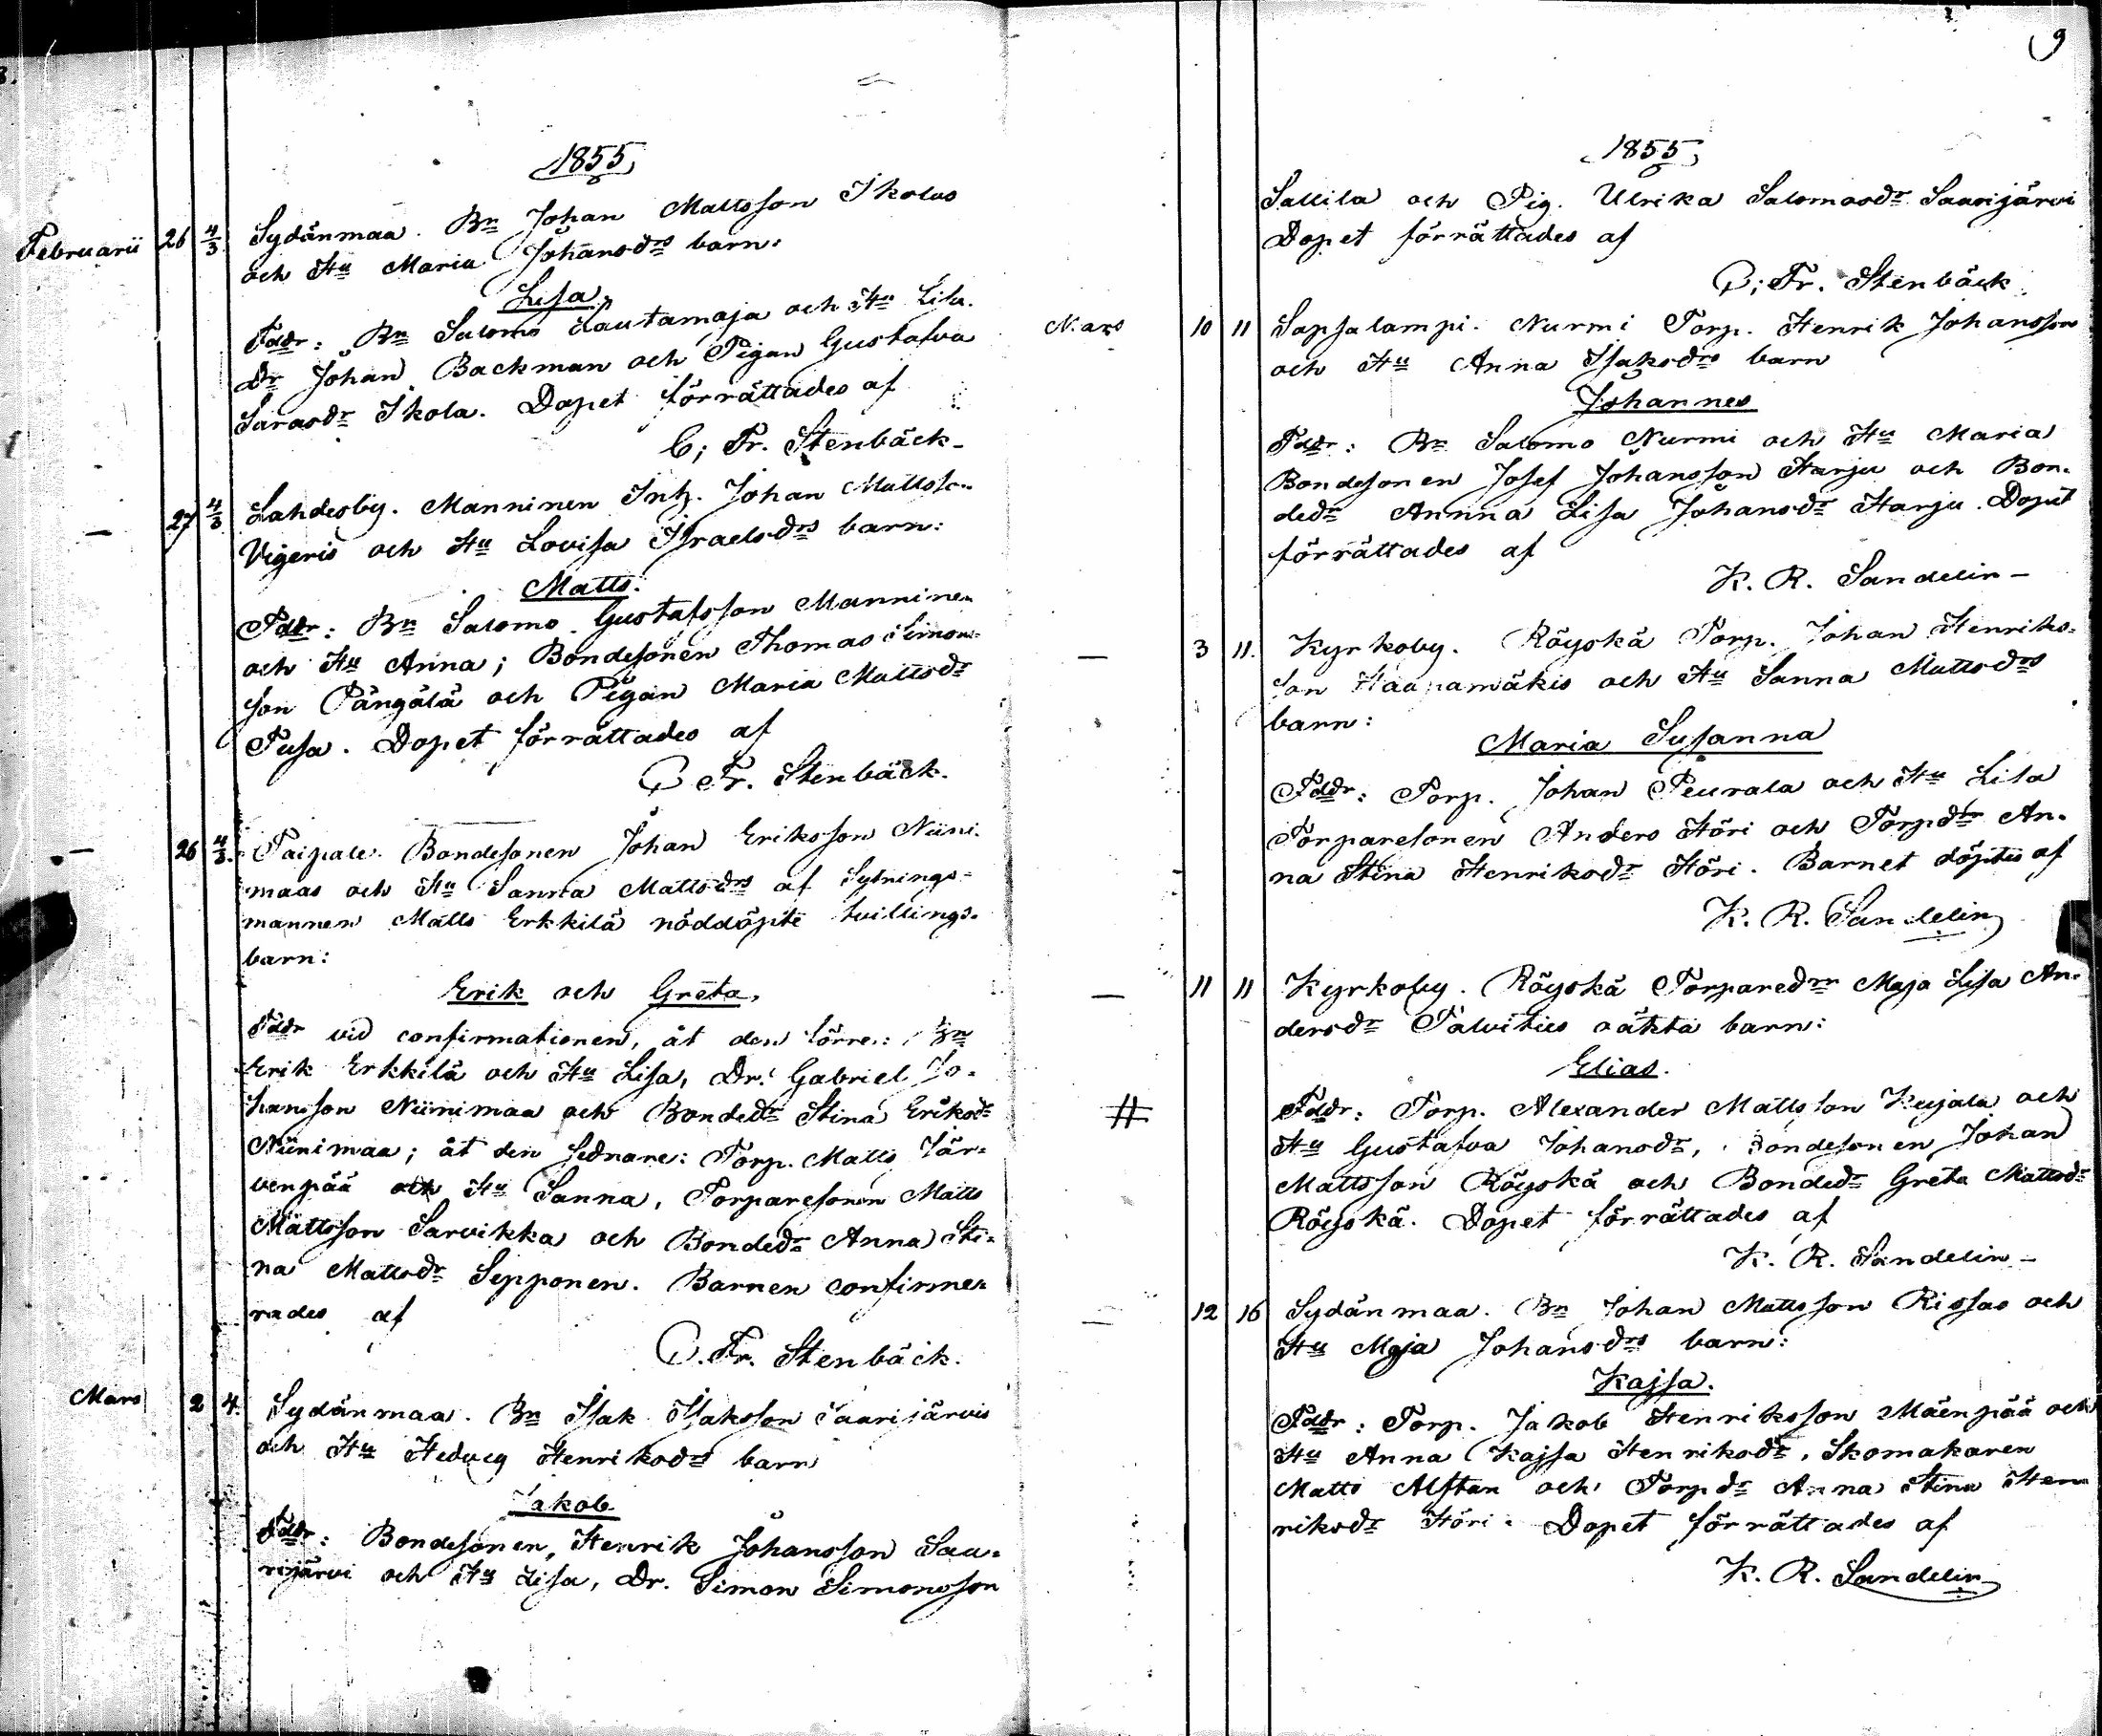 1855
Februarii 26 4/3 Sydänmaa. Bn Johan Mattsson Ikolas
och Hu Maria Johansdrs barn:
Lisa,
Fddr: Bn Salomo Lautamaja och Hu Lisa.
Dr Johan Backman och Pigan Gustafva
Sarasdr Ikola. Dopet förrättades af
C; Fr. Stenbäck-
— 27 4/3 Lahdesby. Manninen Inh. Johan Mattsson
Vigeris och Hu Lovisa Israelsdrs barn:
Matts.
Fddr: Bn Salomo Gustafsson Manninen
och Hu Anna; Bondesonen Thomas Simons-
son Pängälä och Pigan Maria Mattsdr
Pusa. Dopet förrättades af
C Fr. Stenbäck.
— 26 4/3. Paipale. Bondesonen Johan Eriksson Niini-
maas och Hu Sanna Mattsdrs af Sytnings-
mannen Matts Erkkilä nöddöpte tvillings-
barn:
Erik och Greta,
Fddr vid confirmationen, åt den förre: Bn
Erik Erkkilä och Hu Lisa, Dr. Gabriel Jo-
hansson Niinimaa och Bondedr Stina Eriksdr
Niinimaa; åt den sednare: Torp. Matts Jär-
venpää och Hu Sanna, Torparesonen Matts
Mattsson Sarvikka och Bondedr Anna Sti-
na Mattsdr Sepponen. Barnen confirme-
rades af
C. Fr. Stenbäck.
Mars 2 4. Sydänmaa. Bn Isak Isaksson Saarijärvis
och Hu Hedvig Henriksdrs barn
Jakob
Fddr: Bondesonen, Henrik Johansson Saa-
rijärvi och Hu Lisa, Dr. Simon Simonsson
9
1855
Sallila och Pig. Ulrika Salomosdr Saarijärvi
Dopet förrättades af
C; Fr. Stenbäck.
Mars 10 11 Sapsalampi. Nurmi Torp. Henrik Johansson
och Hu Anna Isaksdrs barn
Johannes
Fddr: Bn Salomo Nurmi och Hu Maria
Bondesonen Josef Johansson Harju och Bon-
dedr Annna Lisa Johansdr Harju. Dopet
förrättades af
K. R. Sandelin-
— 3 11. Kyrkoby. Röyskä Torp. Johan Henriks-
son Haapamäkis och Hu Sanna Mattsdrs
barn:
Maria Susanna
Fddr: Torp. Johan Peurala och Hu Lisa
Torparesonen Anders Höri och Torpdtr An-
na Stina Henriksdr Höri. Barnet döptes af
K. R. Sandelin
— 11 11 Kyrkoby. Röyskä Torparedrn Maja Lisa An-
dersdr Talvities oäkta barn:
Elias.
# Fddr: Torp. Alexander Mattsson Kujala och
Hu Gustafva Johansdr, Bondesonen Johan
Mattsson Röyskä och Bondedr Greta Mattsdr
Röyskä. Dopet förrättades af
K. R. Sandelin-
— 12 16 Sydänmaa. Bn Johan Mattsson Rissas och
Hu Maja Johansdrs barn:
Kajsa.
Fddr: Torp. Jakob Henriksson Mäenpää och
Hu Anna Kajsa Henriksdr, Skomakaren
Matts Alftan och Torpdr Anna Stina Hen-
riksdr Höri. Dopet förrättades af
K. R. Sandelin